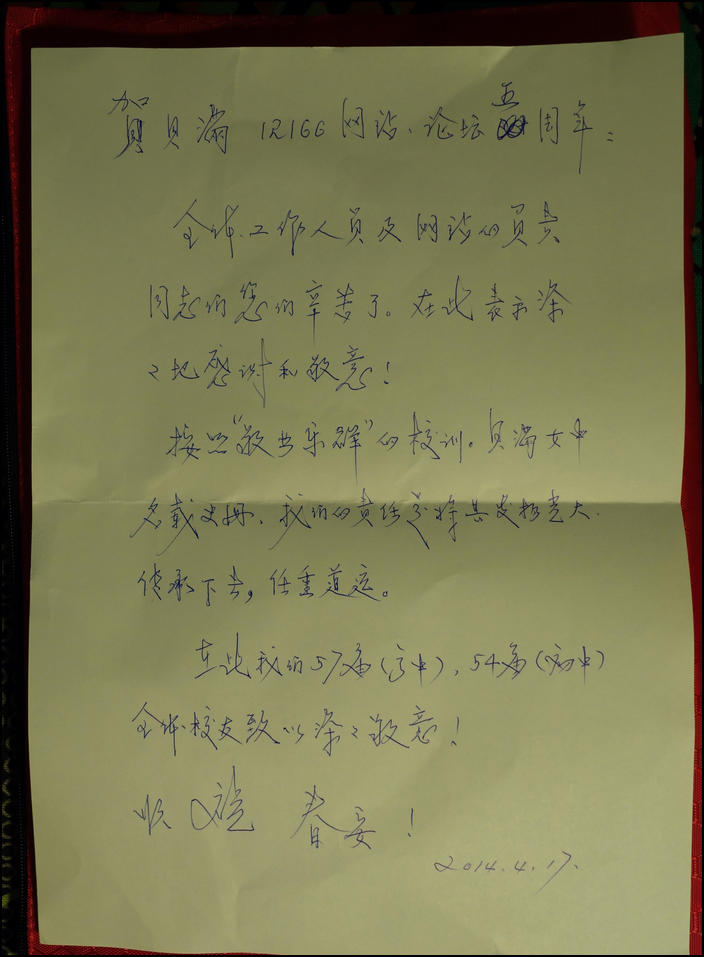 贺贝满12166网站、论坛五周年：
全体工作人员及网站的负责
同志们您们辛苦了。在此表示深
々地感谢和敬意！
按照“敬业乐群”的校训。贝满女中
名载史册、我们的责任是将其发扬光大
传承下去，任重道远。
在此我们57届（高中），54届（初中）
全体校友致以深々敬意！
顺颂 春安！
2014.4.17.